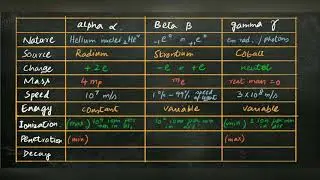 alpha α Beta β gamma γ
Nature Helium nuclei ₂He⁴ ₋₁e⁰ or ₊₁e⁰ em rad. / photons
Source Radium Strontium Cobalt
Charge +2e -e or +e neutral
Mass 4mp me rest mass = 0
Speed 10⁷ m/s 1% - 99% speed of light 3 x 10⁸ m/s
Energy constant variable variable
Ionization (max) 10⁴ ions per in air 10² ions per in air (min) ions per in air
Penetration (min) (max)
Decay